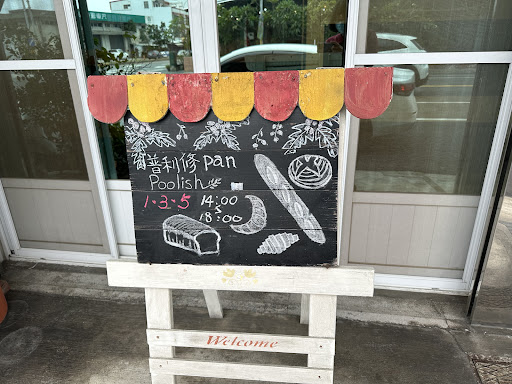 普利修 pan
Poolish
1.3.5 14:00
~
18:00
Welcome